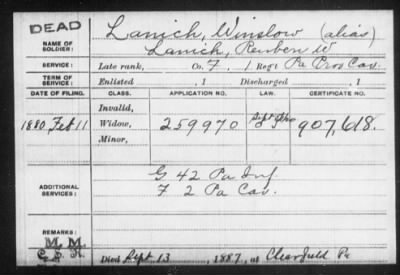 DEAD
Lanich, Winslow (alias)
NAME OF SOLDIER: Lanich, Reuben W
SERVICE: Late rank, Co. F, 1 Reg't Pa Prov Cav.
TERM OF SERVICE: Enlisted , 1 Discharged , 1
DATE OF FILING. CLASS. APPLICATION NO. LAW. CERTIFICATE NO.
Invalid,
1880, Feb 11 Widow, 259970 907,618.
Minor,
ADDITIONAL SERVICES: G 42 Pa Inf
F 2 Pa Cav.
REMARKS:
M. M.
Died Sept 13, 1887, at Clearfield Pa